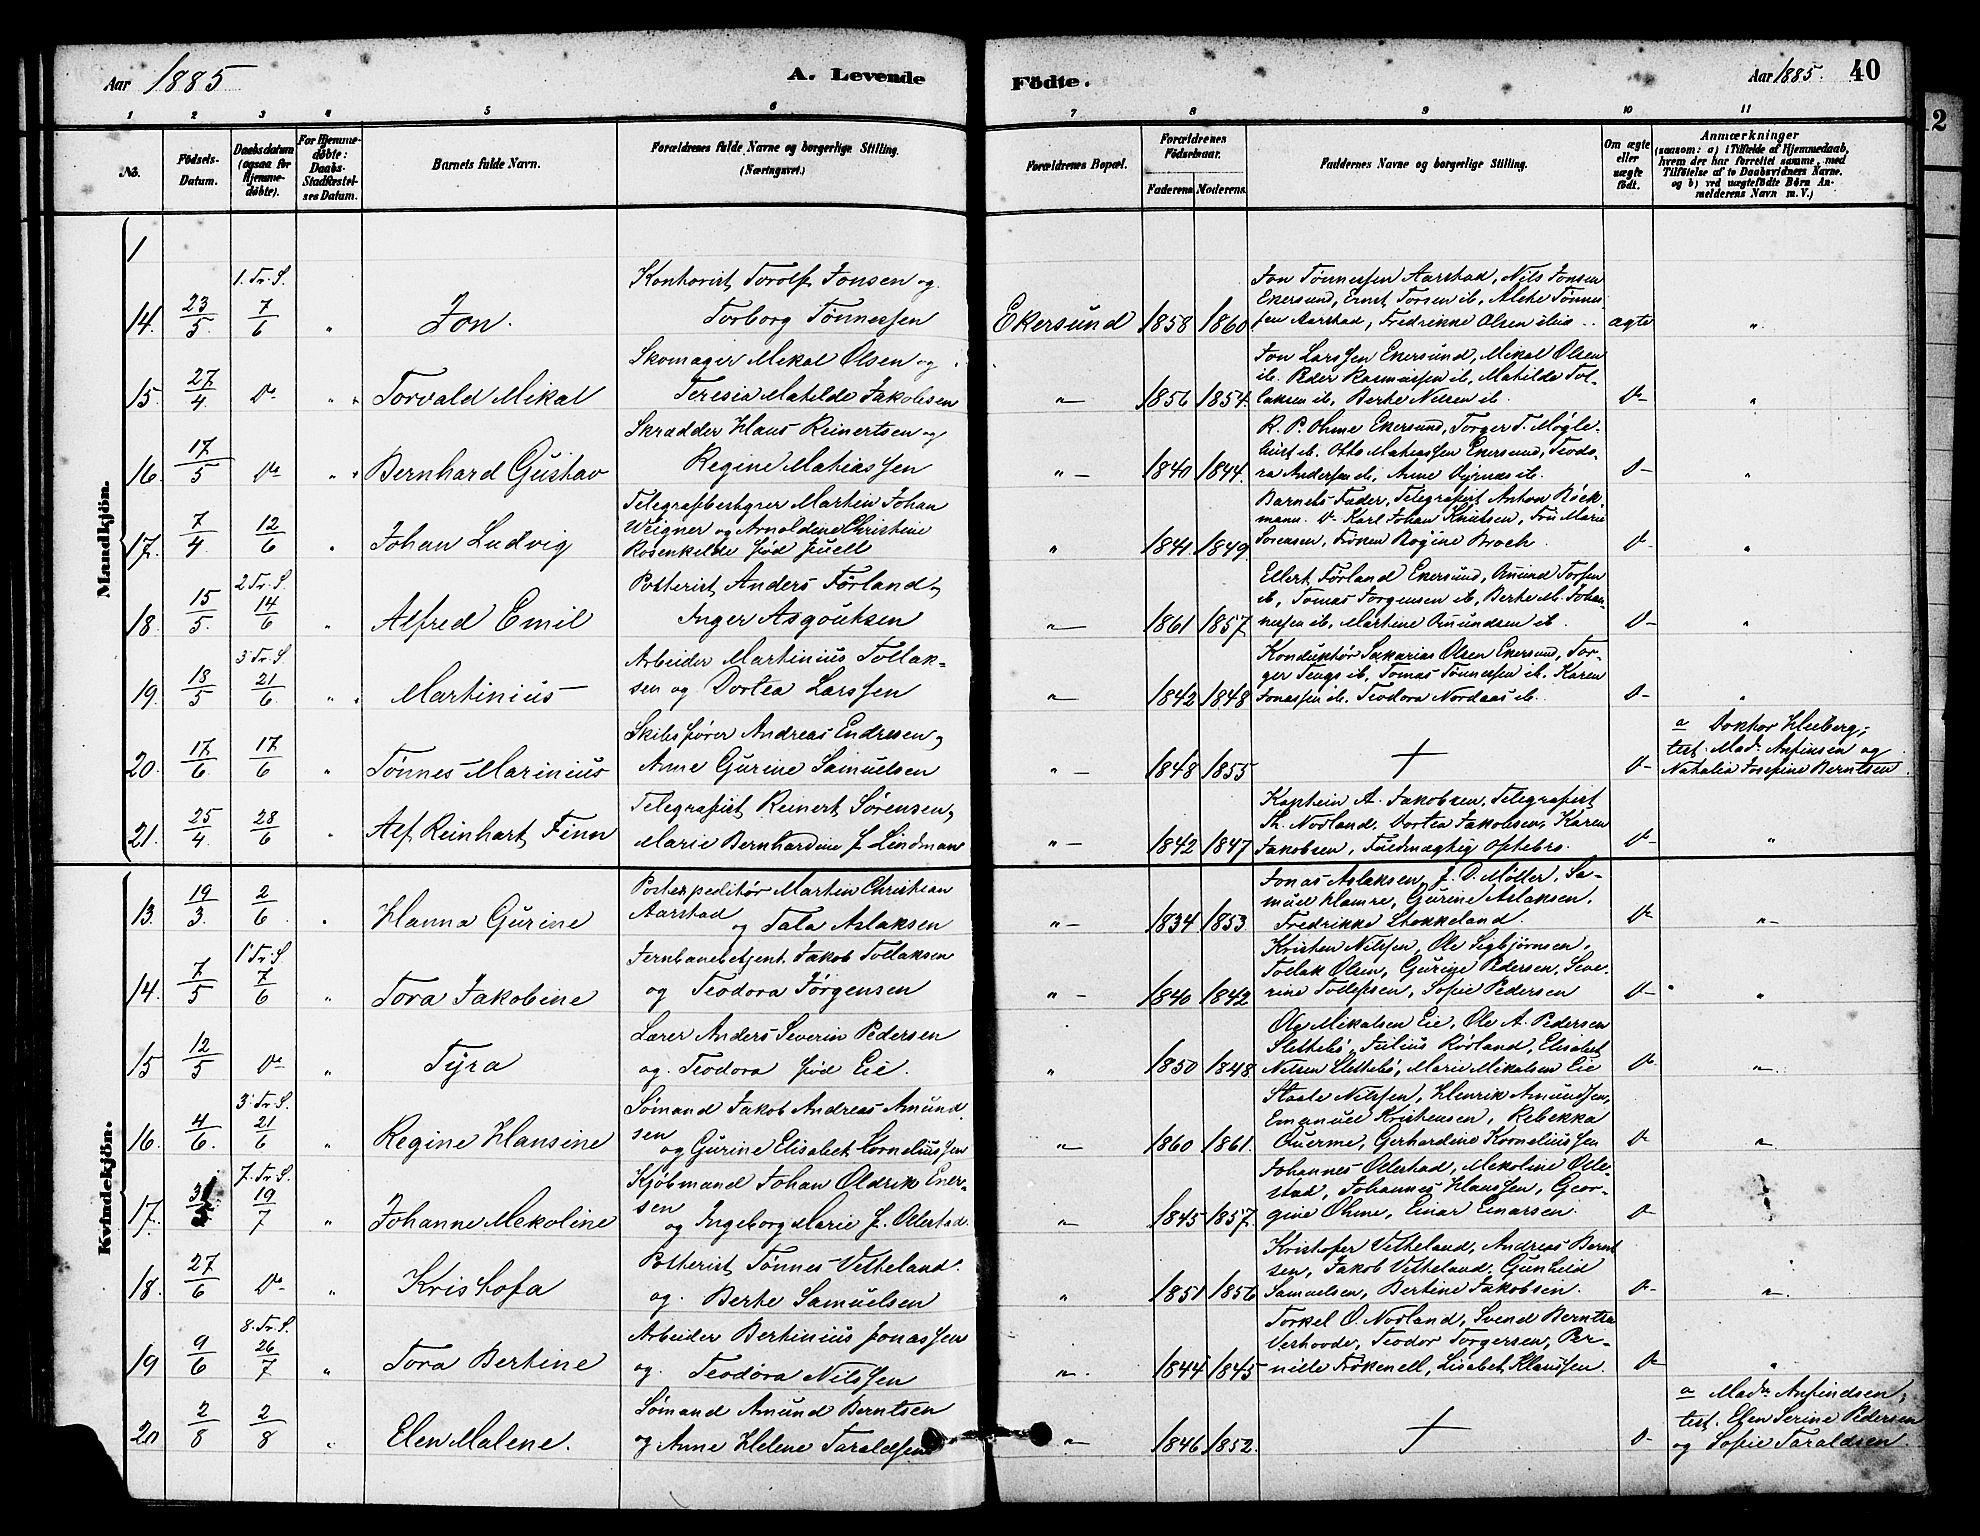 Aar 1885
A. Levende
Födte.
Aar 1885.
40
1 2 3 4 5 6 7 8 9 10 11
No.
Födsels-Datum.
Daabsdatum (ogsaa for Hjemmedöbte).
For Hjemmedöbte: Daabs-Stadfæstelses Datum.
Barnets fulde Navn.
Forældrenes fulde Navne og borgerlige Stilling. (Næringsvei.)
Forældrenes Bopæl.
Forældrenes Födselsaar.
Faderens. Moderens.
Faddernes Navne og borgerlige Stilling.
Om ægte eller uægte födt.
Anmærkninger (saasom: a) i Tilfælde af Hjemmedaab, hvem der har forrettet samme, med Tilföielse af to Daabsvidners Navne, og b) ved uægtefödte Börn Anmelderens Navn m. V.)
Mandkjön.
1
14. 23/5 1. Tr. S. 7/6 " Jon. Kontorist Torolf Jonsen og Torborg Tönnessen Ekersund 1858 1860 Jon Tönnessen Aarstad, Nils Jonsen Ekersund, Ernst Torsen ib, Alette Tönnessen Aarstad, Fredrikke Olsen ibid ægte "
15. 27/4 Do " Torvald Mikal Skomager Mikal Olsen og Teresia Matilde Jakobsen " 1856 1854. Jon Larssen Ekersund, Mikal Olsen ib. Peder Rasmussen ib, Matilda Tollaksen ib, Berte Nilsen ib. D- "
16. 17/5 Do " Bernhard Gustav Skrædder Hans Reinertsen og Regine Mathiassen " 1840 1844. R. P. Ohme Ekersund, Torger T. Möglehust ib. Otto Mathiassen Ekersund, Teodora Andersen ib, Anne ib. D- "
17. 7/4 12/6 " Johan Ludvig Telegrafbestyrer Martin Johan Weigner og Arnoldine Christine Rosenkilde föd Juell " 1841 1849 Barnets Fader, Telegrafist Anton Böckmann. D- Karl Johan Knutsen, Fru Marie Sörensen, Fröken Regine Broch. D- "
18. 15/5 2 Tr. S. 14/6 " Alfred Emil Posterist Anders Förland, Inger Asgoutsen " 1861 1857. Ellert Förland Ekersund, Omund Torsen ib, Tomas Jorgensen ib, Berte M. Johannessen ib, Martine Omundsen ib. D- "
19. 18/5 3 Tr. S. 21/6 " Martinius Arbeider Martinius Tollaksen og Dortea Larssen " 1842 1848 Konduktör Sakarias Olsen Ekersund, Torger Tengs ib, Tomas Tönnessen ib. Karen Jonassen ib. Teodora Nordaas ib. D- "
20. 17/6 17/6 " Tönnes Marinius Skibsförer Andreas Endresen, Anne Gurine Samuelsen " 1848 1855 + D- a Doktor Kleeberg; test. Mad. Anfinsen og Nathalia Josefine Berntsen
21. 25/4 28/6 " Alf Reinhart Finn Telegrafist Reinert Sörensen, Marie Bernhardine f. Lindman " 1842 1847 Kaptein A. Jakobsen, Telegrafist Th. Nodland, Dortea Jakobsen, Karen Jakobsen, Fuldmægtig Oftebro. D- "
Kvindekjön.
13. 19/3 2/6 " Hanna Gurine Postexpeditör Martin Christian Aarstad og Tala Aslaksen " 1834 1853 Jonas Aslaksen, J. D. Möller, Samuel Hamre, Gurine Aslaksen, Fredrikke Stokkeland. D- "
14. 7/5 1 Tr. S. 7/6 " Tora Jakobine Jernbanebetjent Jakob Tollaksen og Teodora Jörgensen " 1840 1842 Kristen Nilssen, Ole Sigbjörnsen, Tollak Olsen, Gurine Pedersen, Severine Tollefsen, Sofie Pedersen D- "
15 12/5 Do " Tyra Lærer Anders Severin Pedersen og Teodora föd Eie. " 1850 1848 Ole Mikalsen Eie, Ole A. Pedersen Slettebö, Julius Rörland, Elisabet Nilsen Slettebö, Marie Mikalsen Eie D- "
16. 4/6 3 Tr. S. 21/6 " Regine Hansine Sömand Jakob Andreas Amundsen og Gurine Elisabet Corneliussen " 1860 1861. Staale Nilssen, Henrik Amundsen, Emanuel Kristensen, Rebekka Querme, Gerhardine Korneliussen D- "
17. 7. Tr. S. 19/7 " Johanne Mekoline Kjöbmand Johan Oldrik Enersen og Ingeborg Marie f. Ollestad " 1845 1857. Johannes Ollestad, Mekoline Ollestad, Johannes Klaussen, Georgine Ohme, Einar Einarsen. D-
18. 27/6 Do " Kristofa Posterist Tönnes Vetteland og Berte Samuelsen " 1851 1856 Kristofer Vetteland, Andreas Berntsen, Jakob Vetteland, Gunhild Samuelsen, Bertine Jakobsen. D- "
19 9/6 8. Tr. S. 26/7 " Tora Bertine Arbeider Bertinius Jonassen og Teodora Nilssen " 1844 1845 Torkel O. Nodland, Svend Berntsen Verhovde, Teodor Torgersen, Pernille Frökenell, Lisabet Klaussen. D- "
20 2/8 2/8 " Elen Malene. Sömand Amund Berntsen og Anne Helene Taraldsen " 1846 1852. + D- a Mad. Anfindsen, test. Elen Serine Pedersen og Sofie Taraldsen.
12